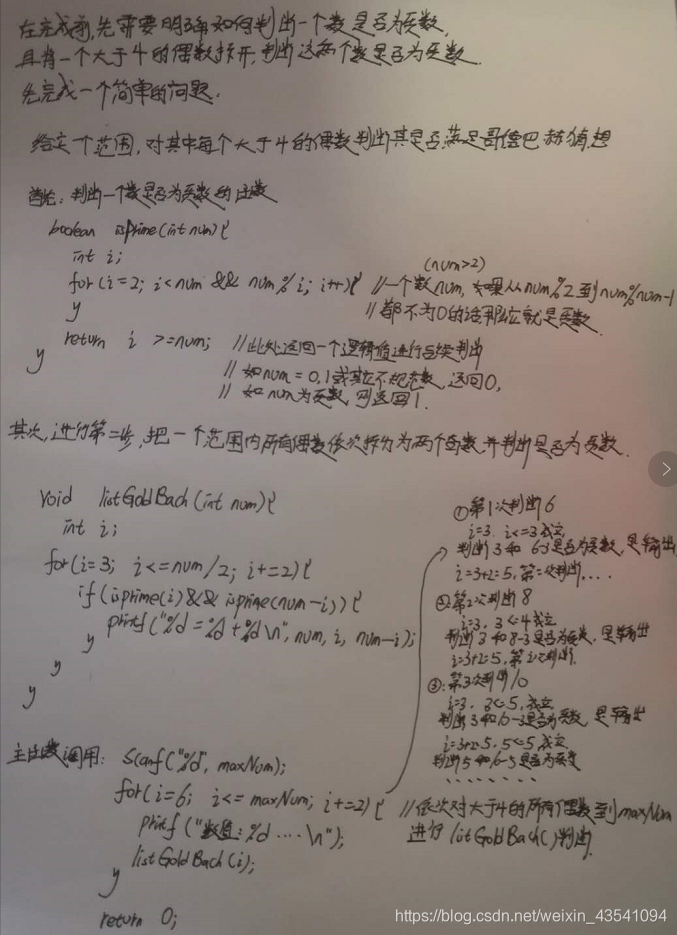 在完成前,先需要明确如何判断一个数是否为质数,
且将一个大于4的偶数拆开,判断这两个数是否为质数.
先完成一个简单的问题.
给定一个范围,对其中每个大于4的偶数判断其是否满足哥德巴赫猜想
首先:判断一个数是否为质数的函数
boolean isprime(int num){
int i;
for(i=2; i<num && num%i; i++){
(num>2)
//一个数num,如果从num%2到num%num-1
//都不为0的话那么就是质数.
}
return i >=num; //此处返回一个逻辑值进行后续判断
//如num=0,1或其它不规范数,返回0,
//如num为质数,则返回1.
}
其次,进行第二步,把一个范围内所有偶数依次拆分为两个奇数,并判断是否为质数.
void listGoldBach(int num){
int i;
for(i=3; i<=num/2; i+=2){
if(isprime(i)&& isprime(num-i)){
printf("%d=%d+%d\n", num, i, num-i);
}
}
}
①第1次判断6
i=3. i<=3成立
判断3和6-3是否为质数,是输出
i=3+2=5,第二次判断,....
②第2次判断8
i=3, 3<=4成立
判断3和8-3是否为质数,是输出
i=3+2=5,第2次判断.
③:第3次判断10
i=3. 3<=5,成立
判断3和10-3是否为质数,是输出
i=3+2=5. 5<=5成立
判断5和10-5是否为质数
........
主函数调用: Scanf("%d", maxNum);
for(i=6; i<=maxNum; i+=2){ //依次对大于4的所有偶数到maxNum
进行listGoldBach()判断.
printf("数值:%d ....\n");
listGoldBach(i);
}
return 0;
https://blog.csdn.net/weixin_43541094